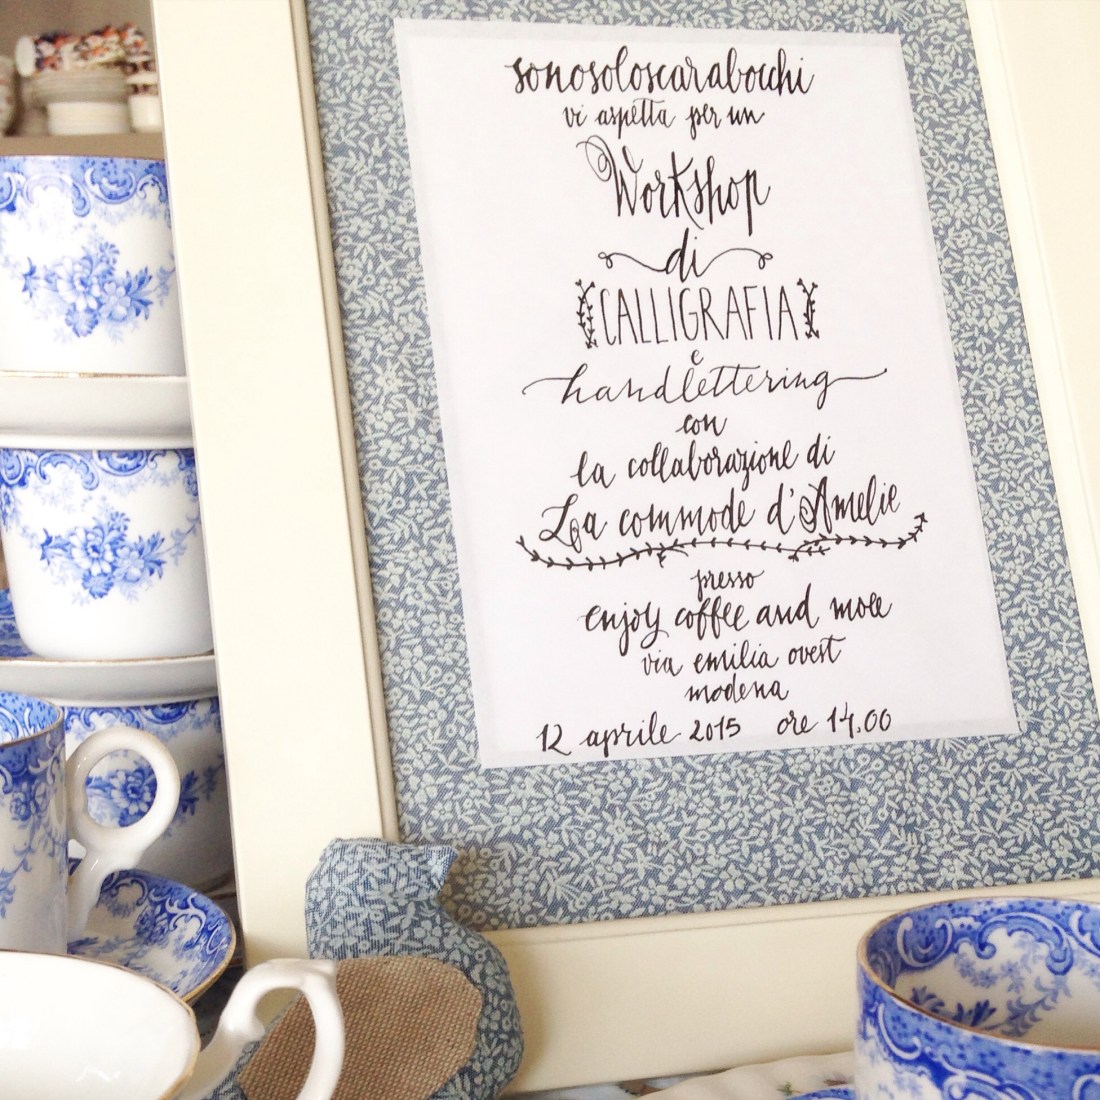 sonosoloscarabocchi
vi aspetta per un
Workshop
di
CALLIGRAFIA
e
handlettering
con
la collaborazione di
La commode d'Amelie
presso
enjoy coffee and more
via emilia ovest
modena
12 aprile 2015 ore 14.00